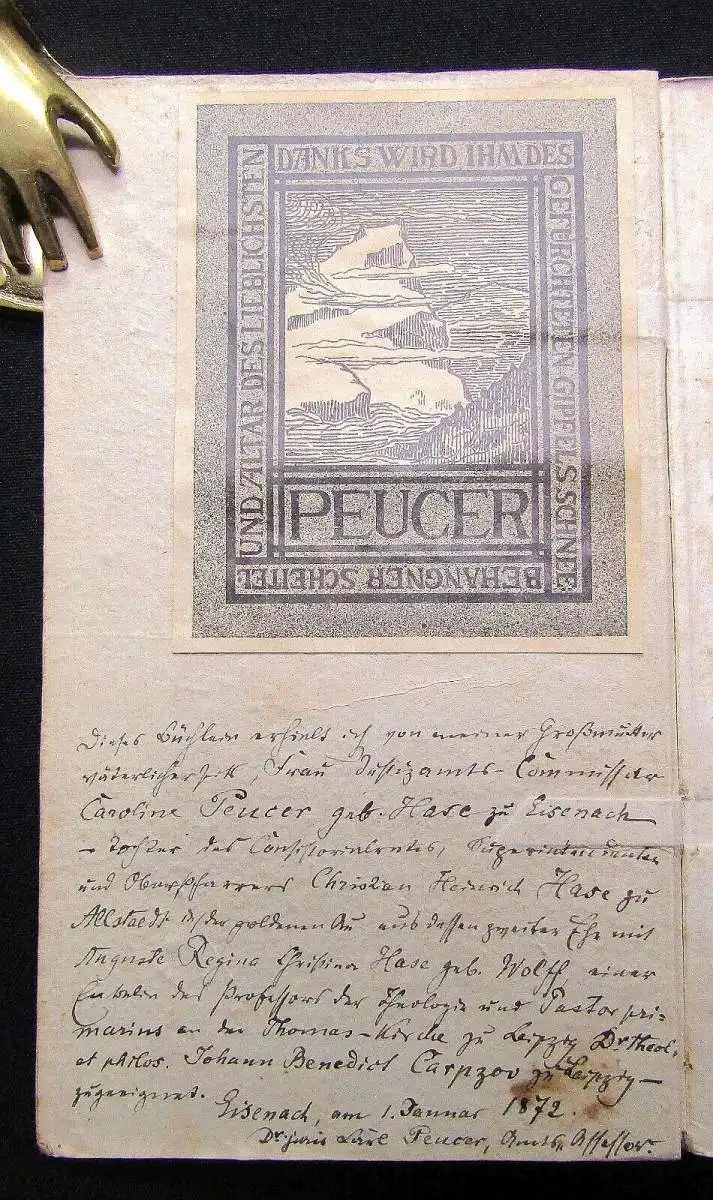 DANKS WIRD IHM DES
GEFÜRCHTETEN GIPFELS SCHNEE:
BEHANGNER SCHEITEL
UND ALTAR DES LIEBLICHSTEN
PEUCER
Dieses Büchlein erhielt ich von meiner Großmutter
väterlicher Seits, Frau Justizamts-Commissar
Caroline Peucer geb. Hase zu Eisenach
– Tochter des Consistorialrates, Superintendenten
und Oberpfarrers Christian Heinrich Hase zu
Allstaedt in der goldenen Au aus dessen zweiter Ehe mit
Auguste Regina Christina Hase geb. Wolff einer
Enkelin des Professors der Theologie und Pastor pri=
marius an der Thomas-Kirche zu Leipzig Dr theol.
et philos. Johann Benedict Carpzov zu Leipzig –
zugeeignet.
Eisenach, am 1. Januar 1872.
Dr. juris Carl Peucer, Amts-Assessor.